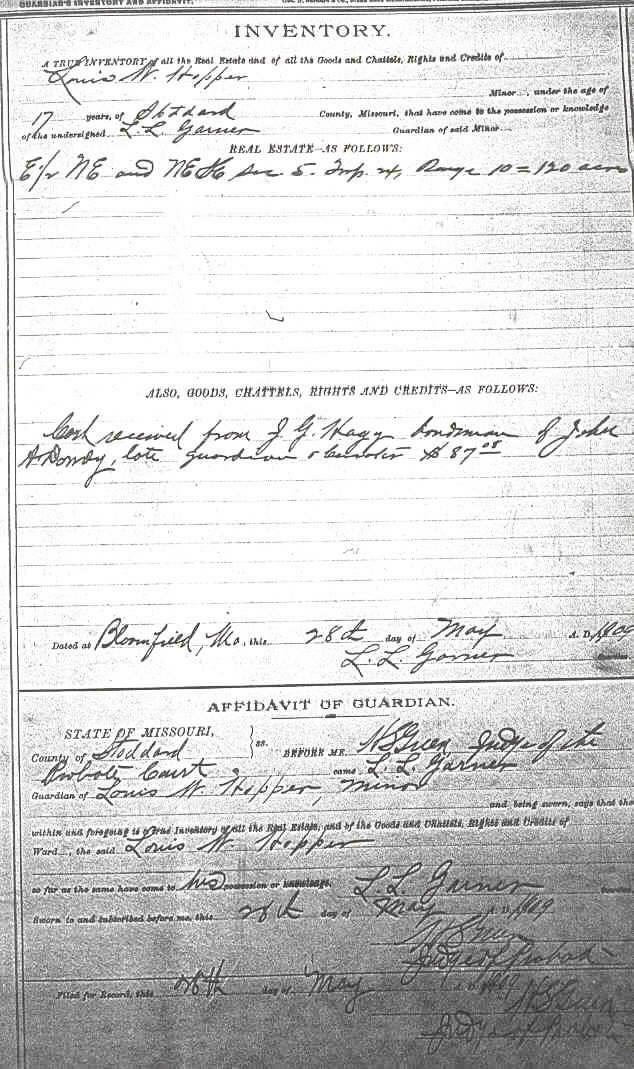 GUARDIAN'S INVENTORY AND AFFIDAVIT.
INVENTORY.
A TRUE INVENTORY of all the Real Estate and of all the Goods and Chattels, Rights and Credits of
Louis W. Hopper
Minor..., under the age of
17 years, of Stoddard County, Missouri, that have come to the possession or knowledge
of the undersigned L. L. Garner Guardian of said Minor...
REAL ESTATE—AS FOLLOWS:
E/2 NE and NE SE sec. 5. Twp. 24, Range 10 = 120 acres
ALSO, GOODS, CHATTELS, RIGHTS AND CREDITS—AS FOLLOWS:
Cash received from J. G. Hagy bondsman of John
A. Dowdy, late guardian & curator $87.08
Dated at Bloomfield, Mo. this 28th day of May A. D. 1909
L. L. Garner
AFFIDAVIT OF GUARDIAN.
STATE OF MISSOURI,
County of Stoddard } ss. BEFORE ME Green Judge of the
Probate Court came L. L. Garner
Guardian of Louis W. Hopper, Minor
and being sworn, says that the
within and foregoing is a True Inventory of all the Real Estate, and of the Goods and Chattels, Rights and Credits of
Ward..., the said Louis W. Hopper
so far as the same have come to his possession or knowledge. L. L. Garner
Sworn to and subscribed before me, this 28th day of May A. D. 1909
Green
Judge of Probate
Filed for Record, this 28th day of May A. D. 1909
Green
Judge of Probate